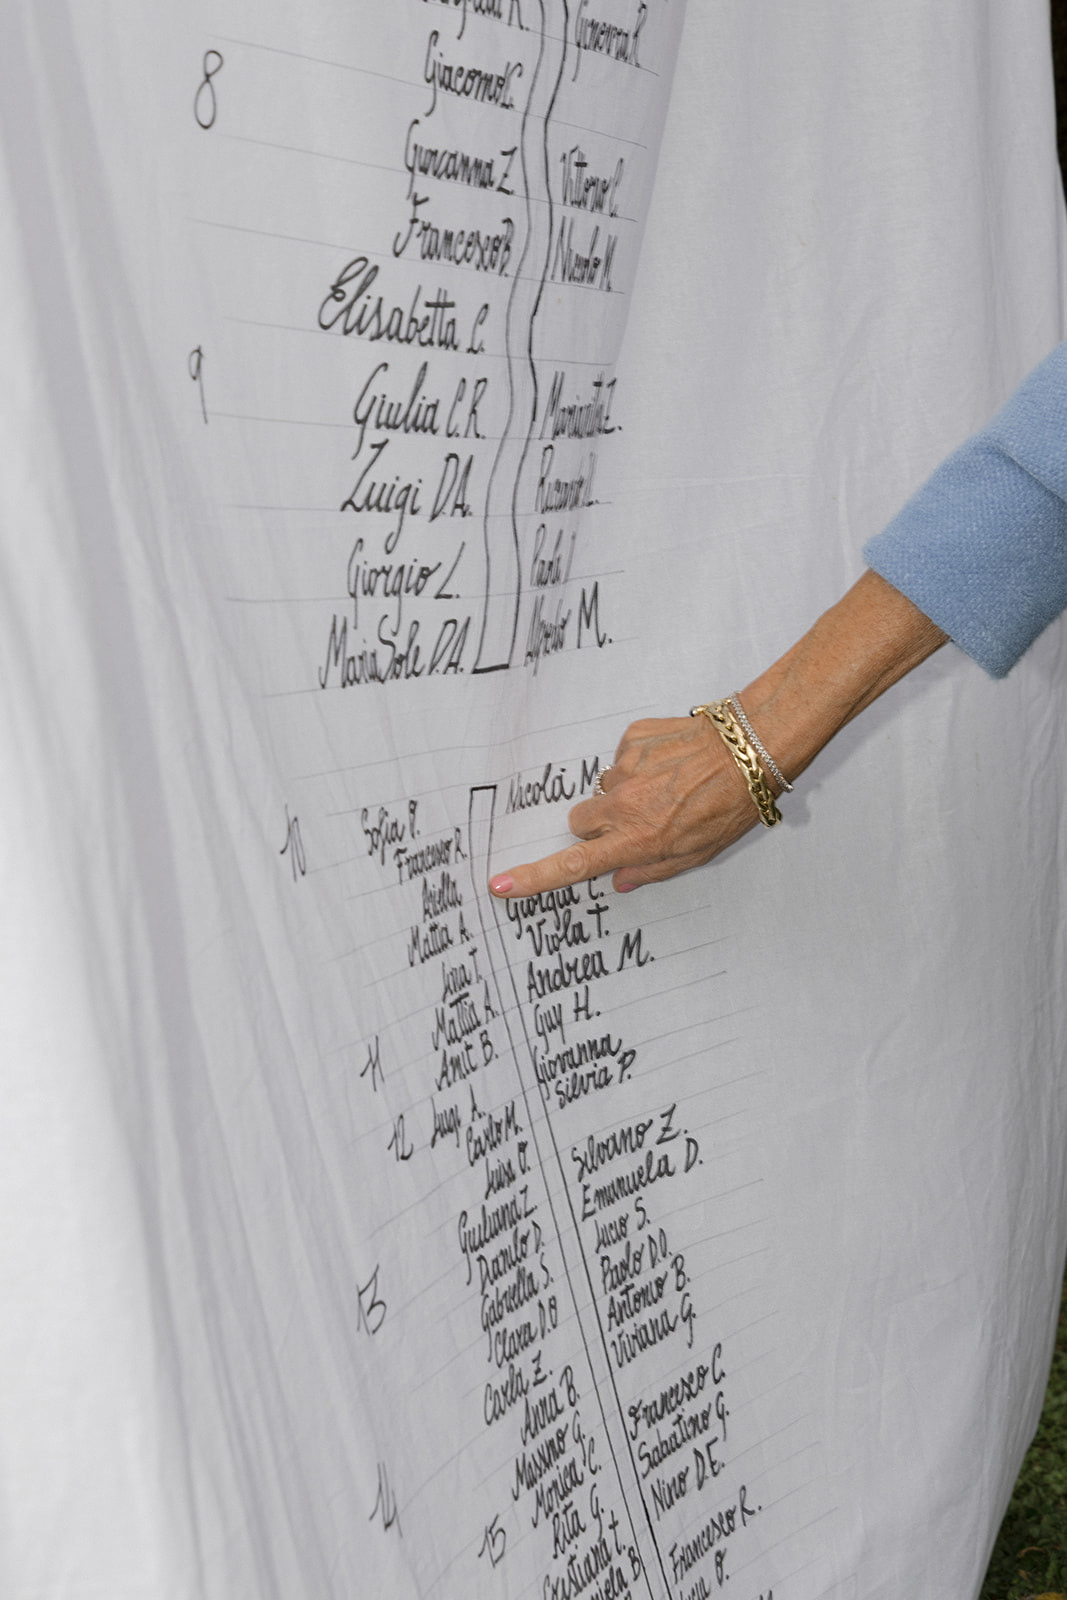 Genevra R
8
Giacomo C.
Giovanna Z.
Vittorio C.
Francesco B.
Niccolo M.
Elisabetta C.
9
Giulia C.R.
Luigi D.A.
Giorgio L.
Paola
MariaSole D.A.
Alfredo M.
Nicola M.
10
Sofia O.
Francesco R.
Ariella
Giorgia C.
Mattia A.
Viola T.
T.
Andrea M.
Mattia A.
Guy H.
11
Amit B.
Giovanna
Silvia P.
12
Luigi A.
Carlo M.
Silvano Z.
Luisa O.
Emanuela D.
Giuliana Z.
Lucio S.
Danilo D.
Paolo D.O.
13
Gabriella S.
Antonio B.
Clara D.O
Viviana G.
Carla Z.
Anna B.
Francesco C.
Massimo G.
Sabatino G.
Monica C.
Nino D.E.
14
Rita G.
15
Cristiana T.
Francesco R.
B
O.